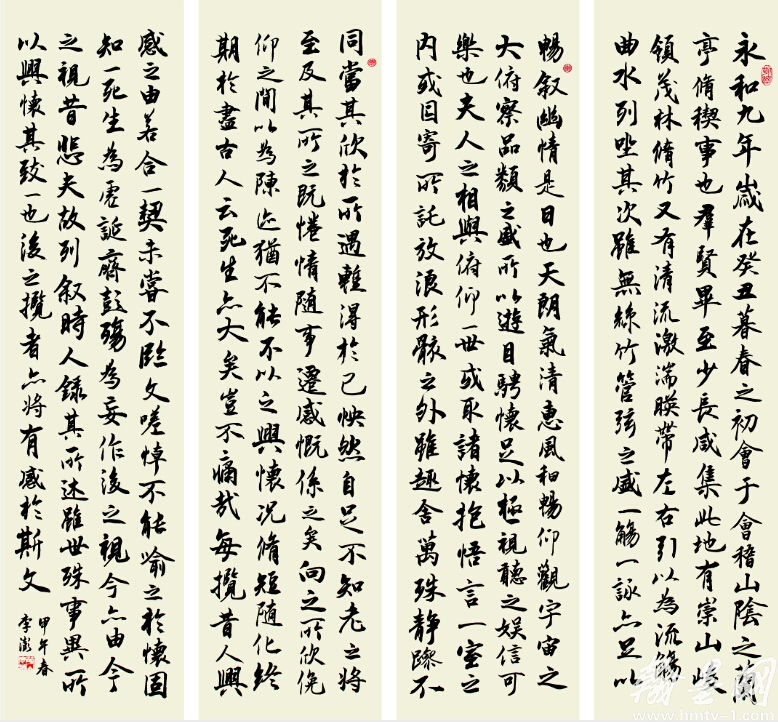 永和九年歲在癸丑暮春之初會于會稽山陰之蘭
亭脩稧事也羣賢畢至少長咸集此地有崇山峻
領茂林脩竹又有清流激湍暎帶左右引以為流觴
曲水列坐其次雖無絲竹管弦之盛一觴一詠亦足以
暢叙幽情是日也天朗氣清惠風和暢仰觀宇宙之
大俯察品類之盛所以遊目騁懷足以極視聽之娛信可
樂也夫人之相與俯仰一世或取諸懷抱悟言一室之
內或因寄所託放浪形骸之外雖趣舍萬殊靜躁不
同當其欣於所遇暫得於己怏然自足不知老之將
至及其所之既惓情隨事遷感慨係之矣向之所欣俛
仰之間以為陳迹猶不能不以之興懷況脩短隨化終
期於盡古人云死生亦大矣豈不痛哉每攬昔人興
感之由若合一契未嘗不臨文嗟悼不能喻之於懷固
知一死生為虛誕齊彭殤為妄作後之視今亦由今
之視昔悲夫故列叙時人錄其所述雖世殊事異所
以興懷其致一也後之攬者亦將有感於斯文
甲午春
李澎
翰墨网
www.hmtv-1.com